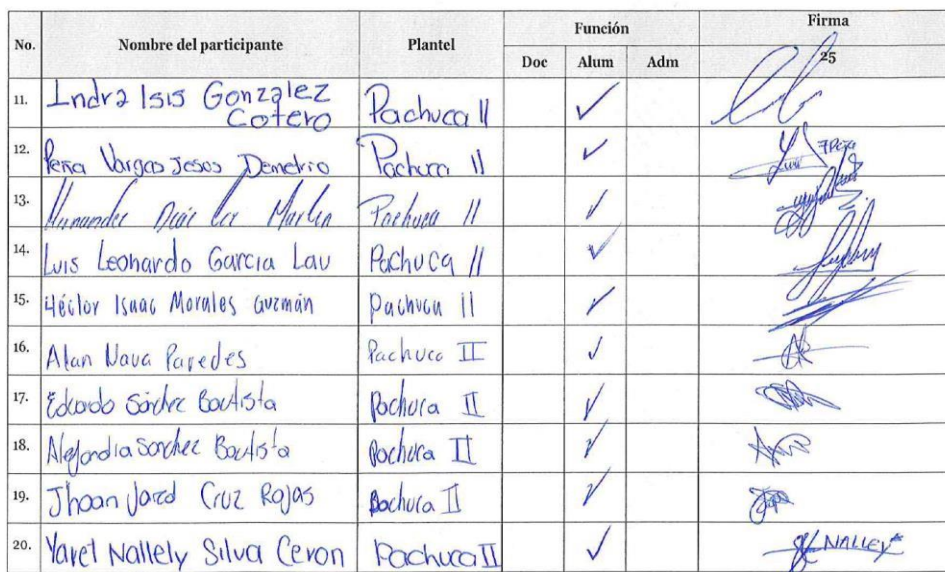 No. Nombre del participante Plantel Función Firma
Doc Alum Adm 25
11. Indra Isis Gonzalez Cotero Pachuca II ✓
12. Peña Vargas Jesus Demetrio Pachuca II ✓
13. Hernandez Pachuca II ✓
14. Luis Leonardo Garcia Lau Pachuca II ✓
15. Héctor Isaac Morales Guzmán Pachuca II ✓
16. Alan Nava Paredes Pachuca II ✓
17. Eduardo Sánchez Bautista Pachuca II ✓
18. Alejandra Sanchez Bautista Pachuca II ✓
19. Jhoan Jared Cruz Rojas Pachuca II ✓
20. Yaret Nallely Silva Ceron Pachuca II ✓ NALLEY*